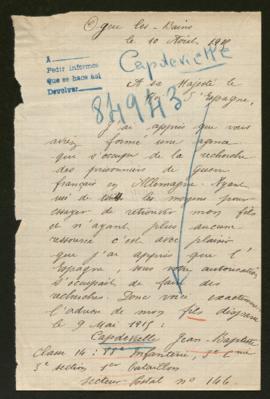 Ogeu les-Bains
le 10 Août, 19
A
Pedir informes
que se hace aqi
Devolver
Capdevielle
A sa Majesté le
d'Espagne,
84943
J'ai appris que vous
aviez formé une agence
qui s'occupe de la recherche
des prisonniers de Guerre
français en Allemagne. Ayant
mi de les moyens pour
essayer de retrouver mon fils
et n'ayant plus aucune
ressource c'est avec plaisir
que j'ai appris que l'
Espagne, sous votre autorisation
s'occupait de faire des
recherches. Donc voici exactement
l'adresse de mon fils disparu
le 9 Mai 1915:
Capdevielle Jean-Baptiste
Classe 14: Infanterie, Cie
3e section 1er bataillon
secteur Postal no 146.